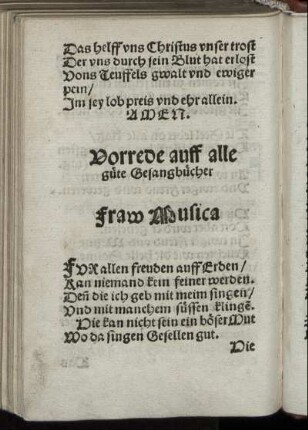 Das helff vns Christus vnser trost
Der vns durch sein Blut hat erlost
Vons Teuffels gwalt vnd ewiger
pein/
Im sey lob preis vnd ehr allein.
AMEN.
Vorrede auff alle
güte Gesangbücher
Fraw Musica
FVR allen freuden auff Erden/
Kan niemand kein feiner werden.
Deñ die ich geb mit meim singen/
Vnd mit manchem süssen klingē.
Die kan nicht sein ein böser Mut
Wo da singen Gesellen gut.
Die